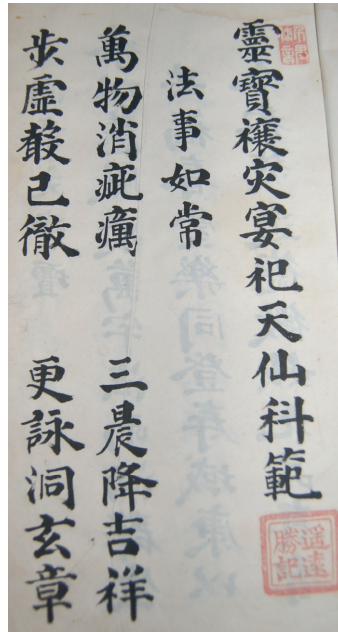 靈寶禳灾宴祀天仙科範
法事如常
萬物消疵癘 三晨降吉祥
步虛𣪊已徹 更詠洞玄章
遥遠勝記